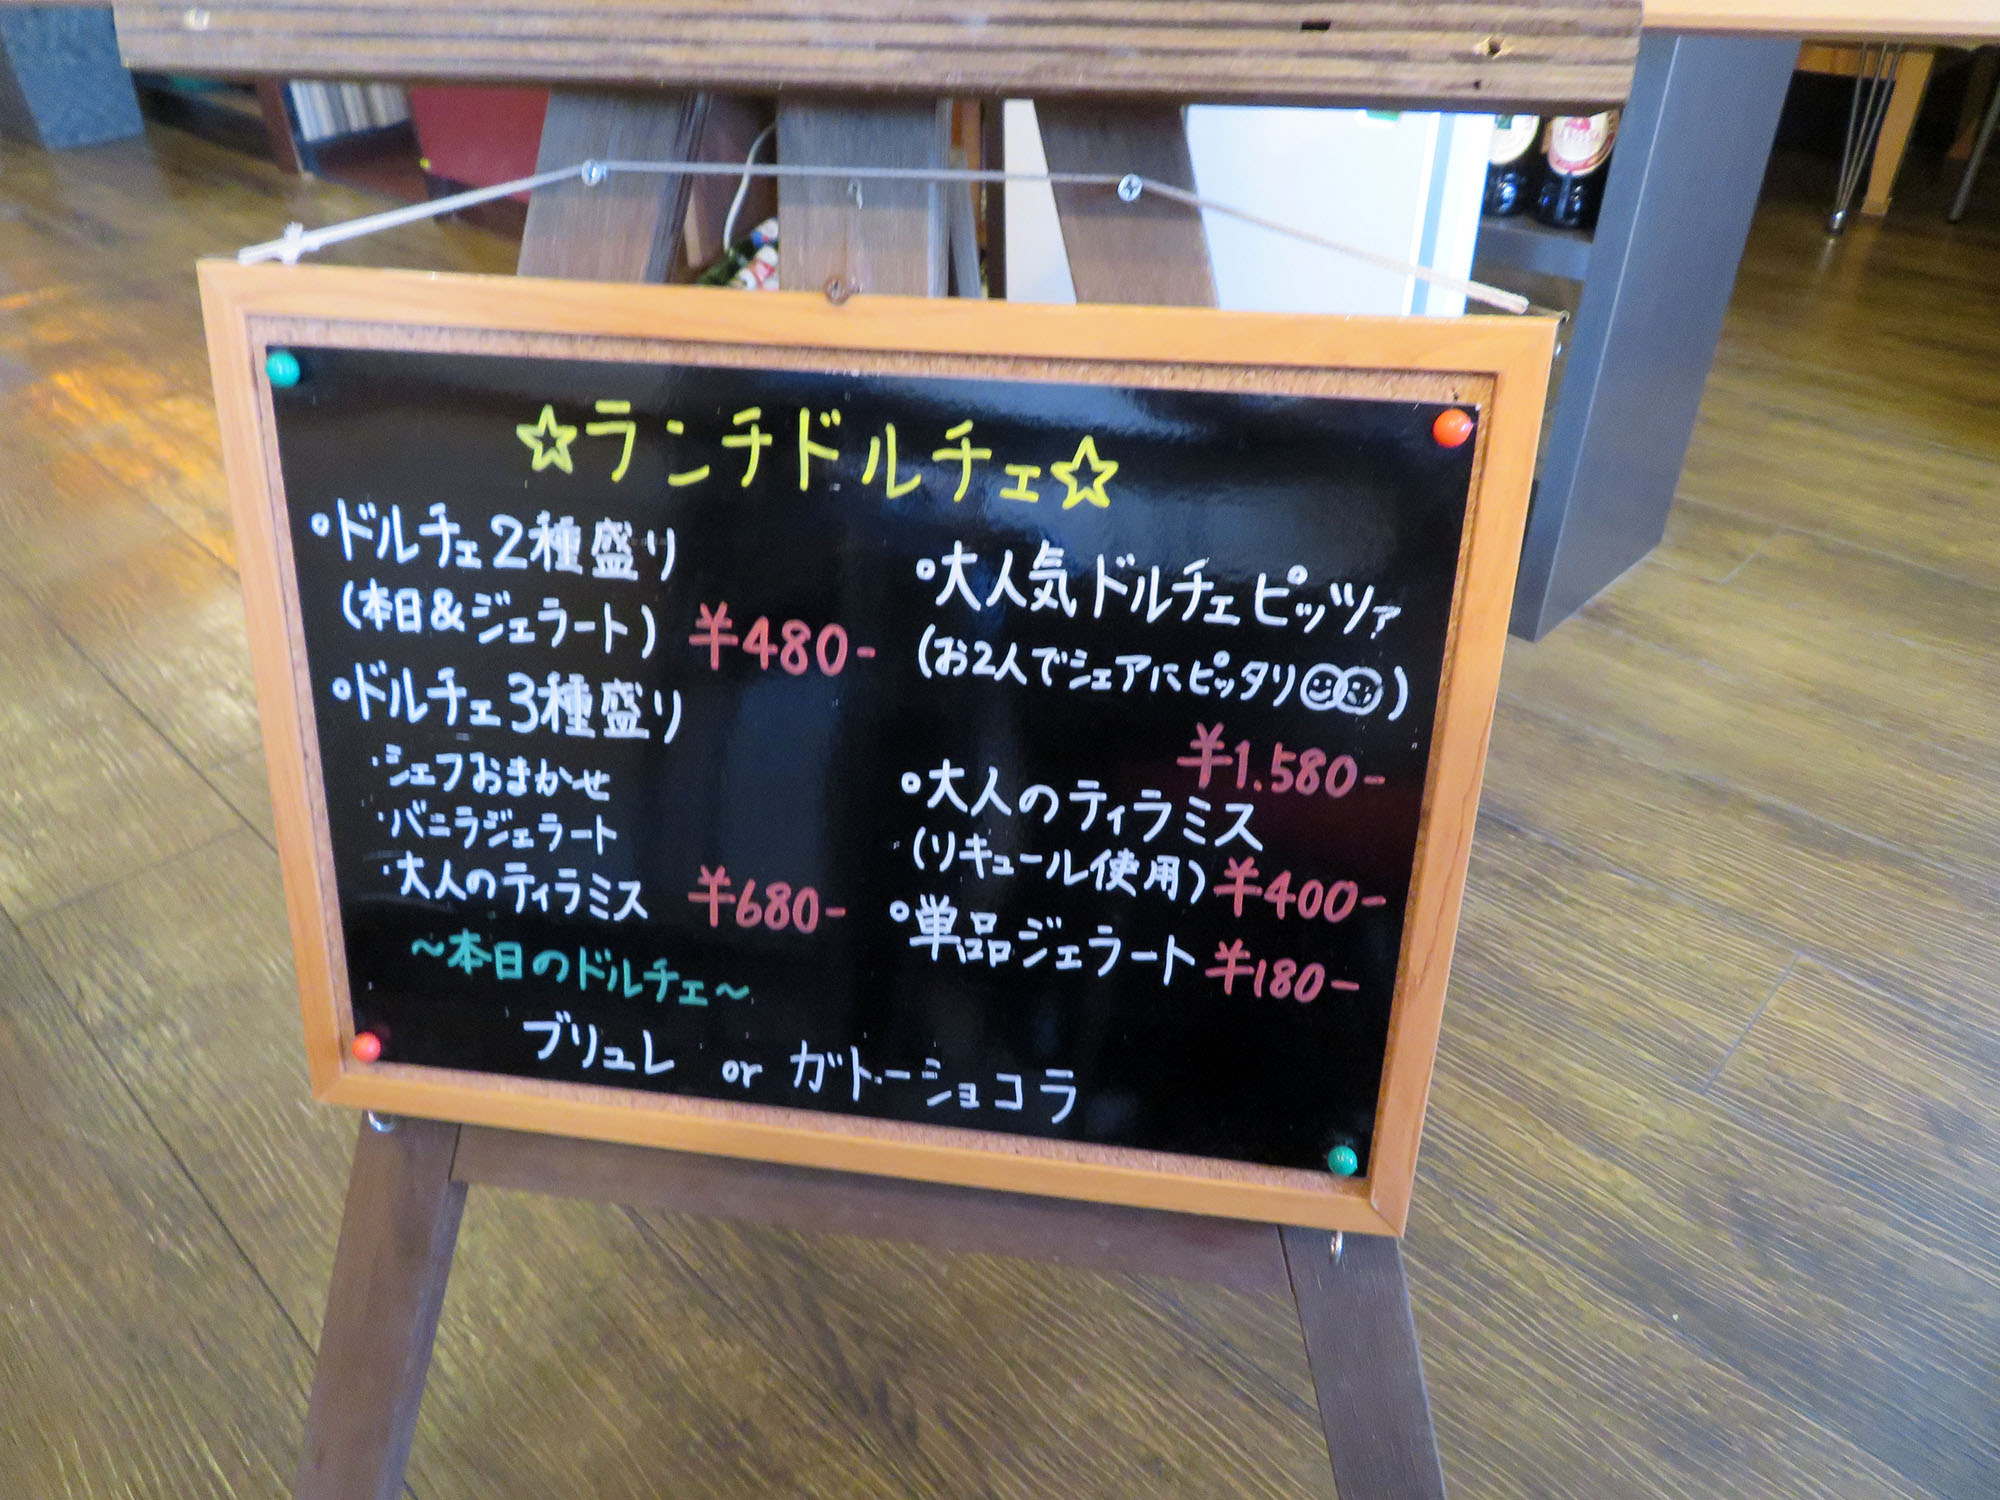 ☆ランチドルチェ☆
◦ドルチェ2種盛り
(本日&ジェラート) ¥480-
◦ドルチェ3種盛り
・シェフおまかせ
・バニラジェラート
・大人のティラミス ¥680-
～本日のドルチェ～
ブリュレ or ガトーショコラ
◦大人気ドルチェピッツァ
(お2人でシェアにピッタリ)
¥1.580-
◦大人のティラミス
(リキュール使用) ¥400-
◦単品ジェラート ¥180-